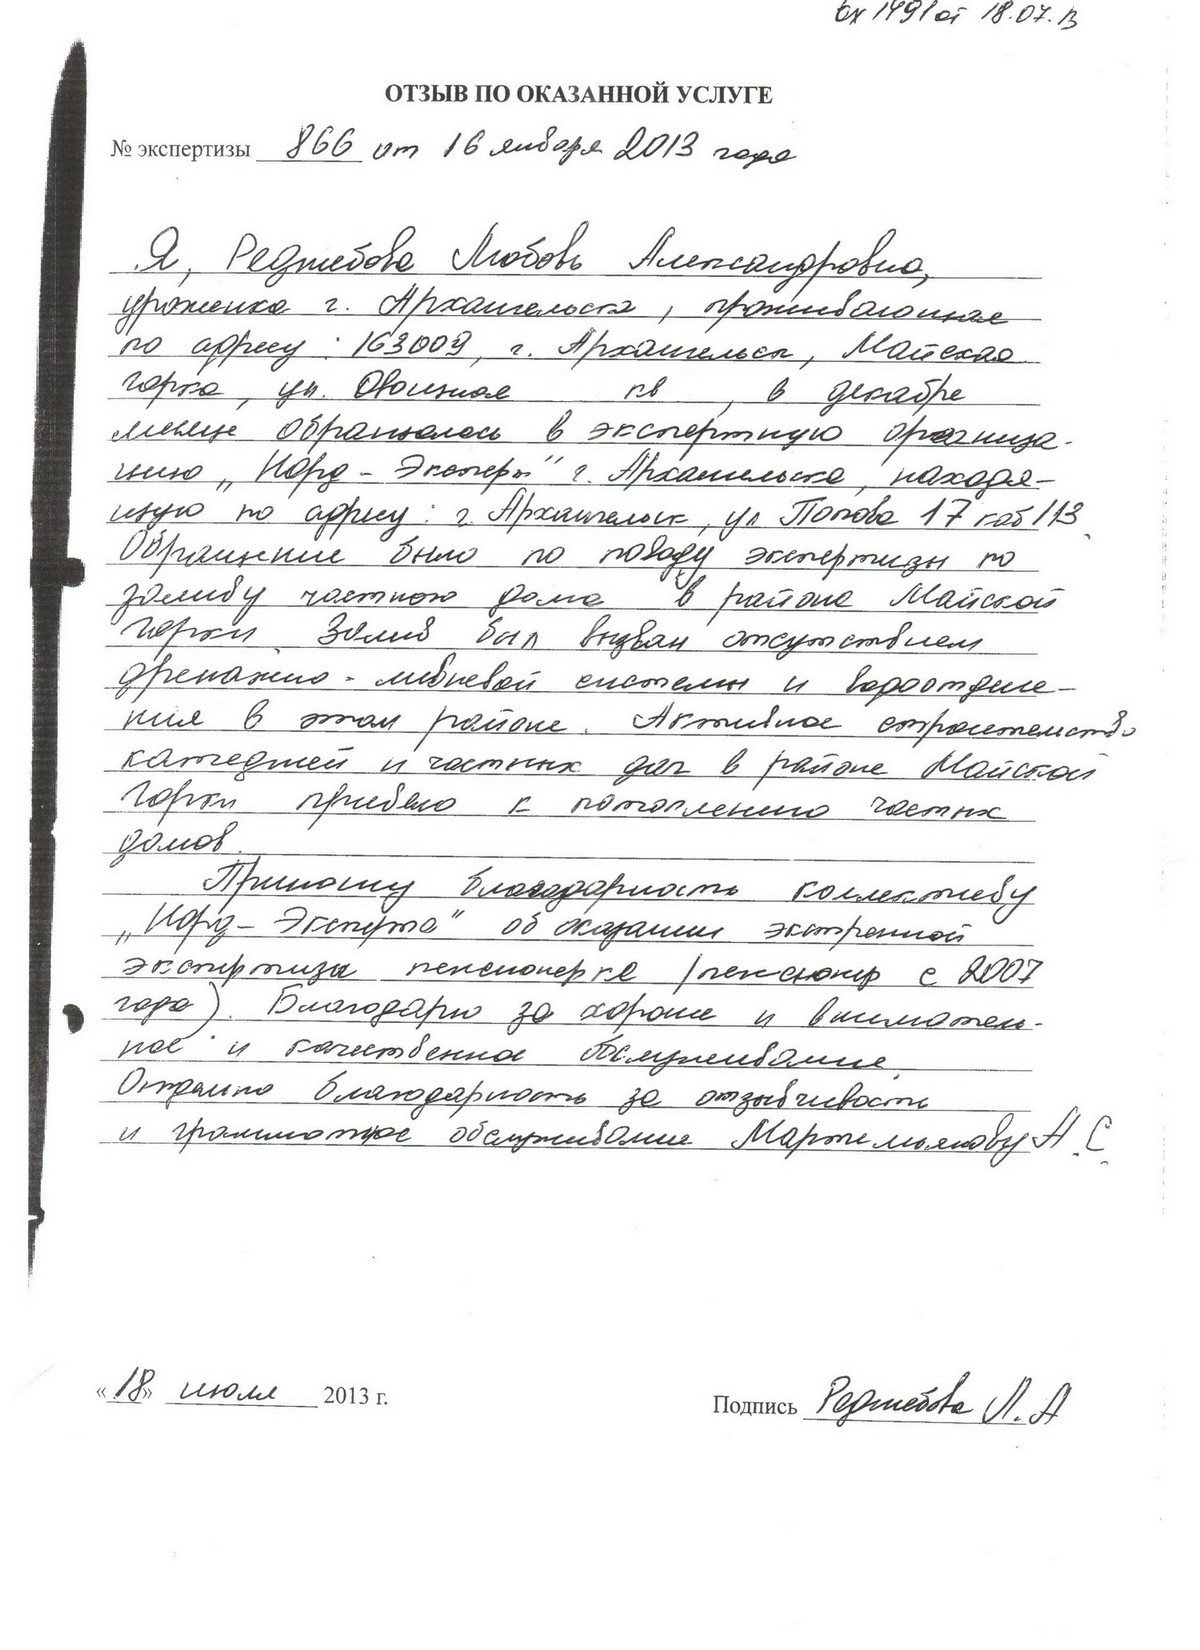 вх 1491 от 18.07.13
ОТЗЫВ ПО ОКАЗАННОЙ УСЛУГЕ
№ экспертизы 866 от 16 января 2013 года
Я, Реджебова Любовь Александровна,
уроженка г. Архангельска, проживающая
по адресу: 163009, г. Архангельск, Майская
горка, ул. Овощная кв , в декабре
месяце обращалась в экспертную организа-
цию „Норд-Эксперт" г. Архангельска, находя-
щуюю по адресу: г. Архангельск, ул Попова 17 каб 113.
Обращение было по поводу экспертизы по
заливу частного дома в районе Майской
Горки Залив был вызван отсутствием
дренажно-ливневой системы и водоотделе-
ния в этом районе. Активное строительство
катеджей и частных дач в районе Майской
Горки привело к потоплению частных
домов.
Приношу благодарность коллективу
„Норд-Эксперта" об оказании экстренной
экспертизы пенсионерке (пенсионер с 2007
года). Благодарю за хорошее и вниматель-
ное и качественное обслуживание.
Отдельно благодарность за отзывчивость
и грамотное обслуживание Мартемьянову А.С.
«18» июля 2013 г.
Подпись Реджебова Л.А